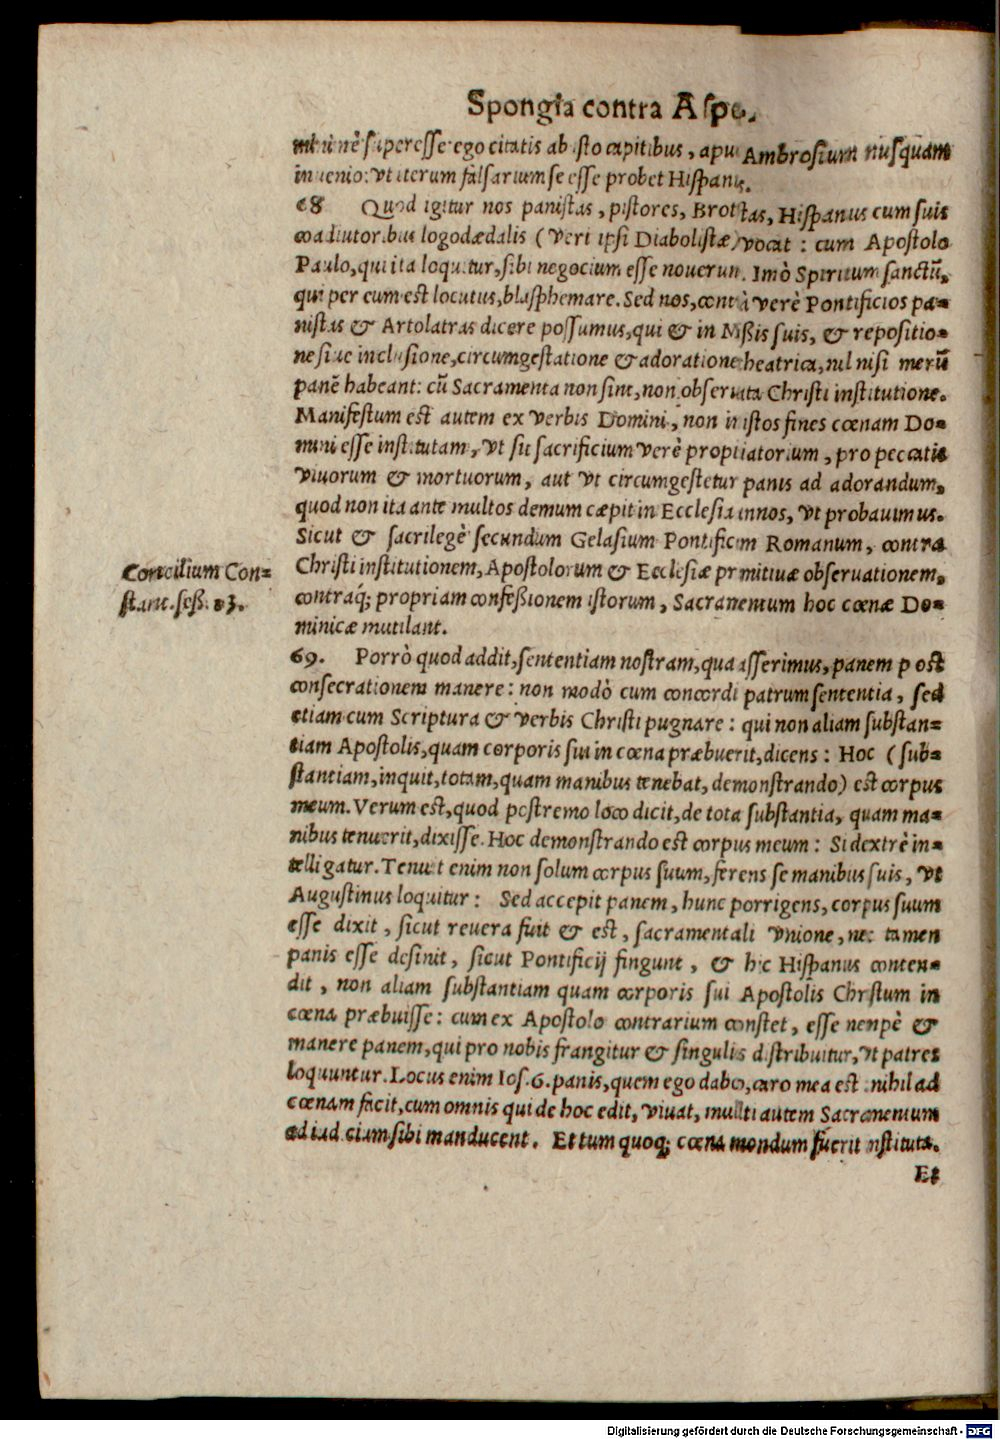 Spongia contra Aspe.
superesse ego citatis ab isto capitibus, apud Ambrosium nusquam
inuenio: vt iterum falsarium se esse probet Hispanus.
68 Quod igitur nos panistas, pistores, Hispanus cum suis
coadiutoribus logodædalis (veri ipsi Diabolistæ) vocat: cum Apostolo
Paulo, qui ita loquitur, sibi negocium esse nouerint. Imò Spiritum sanctũ,
qui per eum est locutus, blasphemare. Sed nos, contrà verè Pontificios pa=
nistas & Artolatras dicere possumus, qui & in Mißis suis, & repositio=
ne siue inclusione, circumgestatione & adoratione theatrica, nil nisi merũ
panẽ habeant: cũ Sacramenta non sint, non obseruata Christi institutione.
Manifestum est autem ex verbis Domini, non in istos fines cœnam Do=
mini esse institutam, vt sit sacrificium verè propitiatorium, pro peccatis
viuorum & mortuorum, aut vt circumgestetur panis ad adorandum,
quod non ita ante multos demum cæpit in Ecclesia annos, vt probauimus.
Sicut & sacrilegè secundum Gelasium Pontificem Romanum, contra
Christi institutionem, Apostolorum & Ecclesiæ primitiuæ obseruationem,
contraq́; propriam confeßionem istorum, Sacramentum hoc cœnæ Do=
minicæ mutilant.
Concilium Con=
stant. seß. 13.
69. Porrò quod addit, sententiam nostram, qua asserimus, panem post
consecrationem manere: non modò cum concordi patrum sententia, sed
etiam cum Scriptura & verbis Christi pugnare: qui non aliam substan=
tiam Apostolis, quam corporis sui in cœna præbuerit, dicens: Hoc (sub=
stantiam, inquit, totam, quam manibus tenebat, demonstrando) est corpus
meum. Verum est, quod postremo loco dicit, de tota substantia, quam ma=
nibus tenuerit, dixisse. Hoc demonstrando est corpus meum: Si dextrè in=
telligatur. Tenuit enim non solum corpus suum, ferens se manibus suis, vt
Augustinus loquitur: Sed accepit panem, hunc porrigens, corpus suum
esse dixit, sicut reuera fuit & est, sacramentali vnione, nec tamen
panis esse desinit, sicut Pontificij fingunt, & hic Hispanus conten=
dit, non aliam substantiam quam corporis sui Apostolis Christum in
cœna præbuisse: cum ex Apostolo contrarium constet, esse nempè &
manere panem, qui pro nobis frangitur & singulis distribuitur, vt patres
loquuntur. Locus enim Ios. 6. panis, quem ego dabo, caro mea est: nihil ad
cœnam facit, cum omnis qui de hoc edit, viuat, multi autem Sacramentum
ad iudicium sibi manducent. Et tum quoq; cœna nondum fuerit instituta.
Et
Digitalisierung gefördert durch die Deutsche Forschungsgemeinschaft - DFG